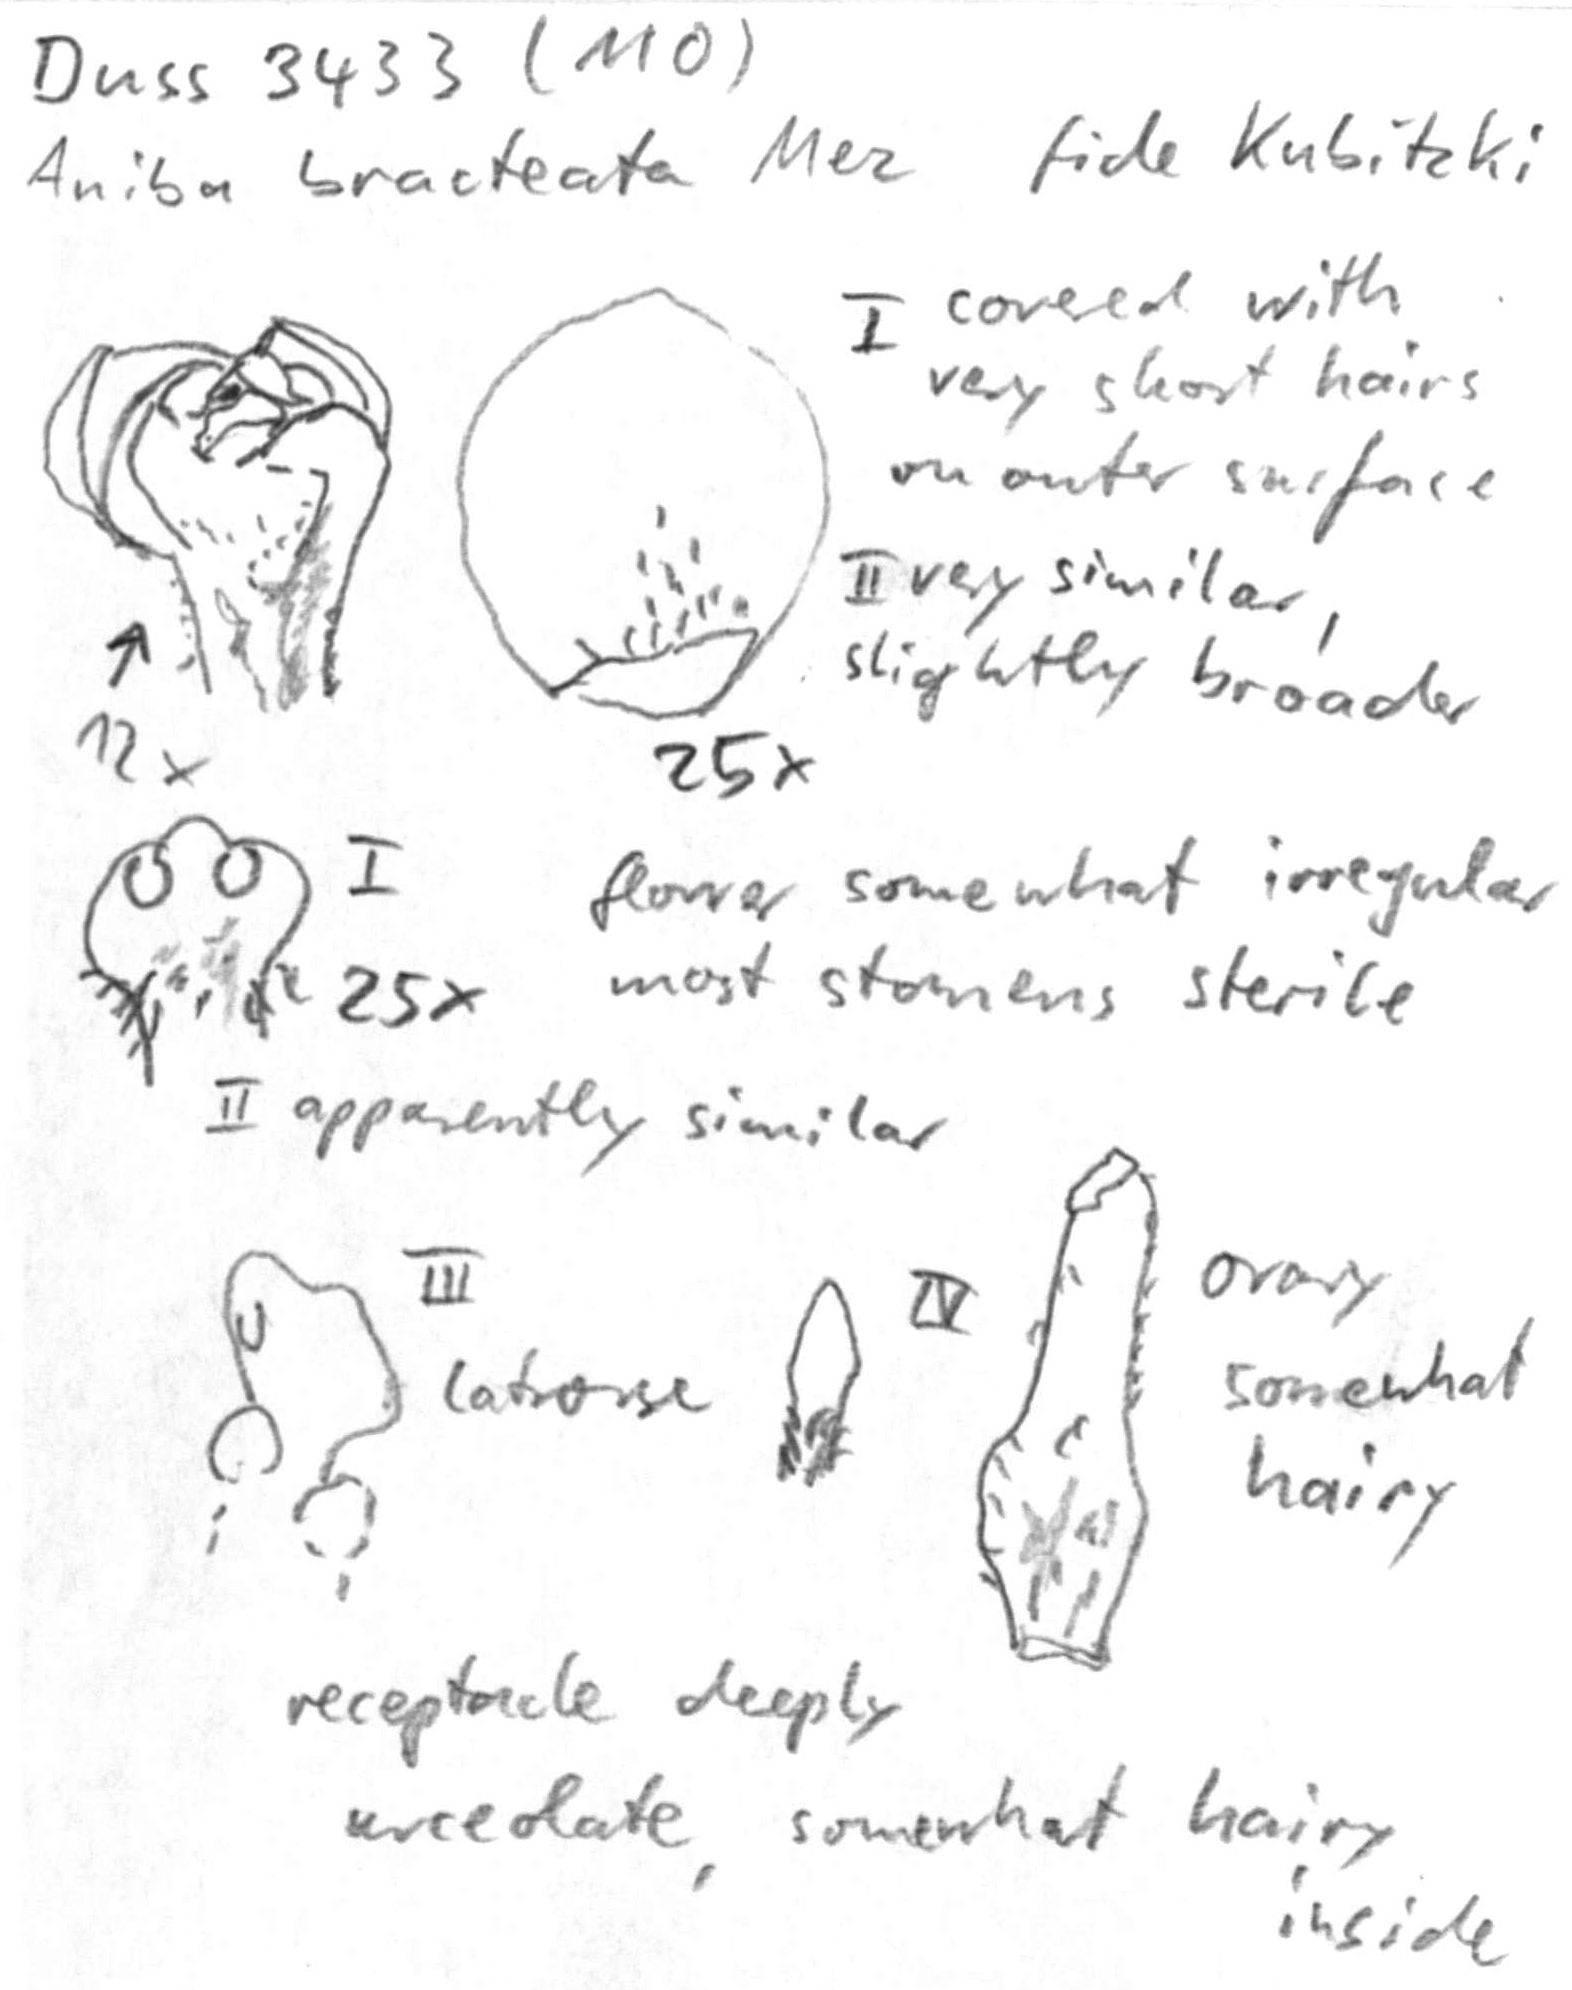 Duss 3433 (MO)
Aniba bracteata Mez fide Kubitzki
I covered with
very short hairs
on outer surface
II very similar,
slightly broader
12x
25x
I
25x
flower somewhat irregular
most stamens sterile
II apparently similar
III
latrorse
IV
ovary
somewhat
hairy
receptacle deeply
urceolate, somewhat hairy
inside